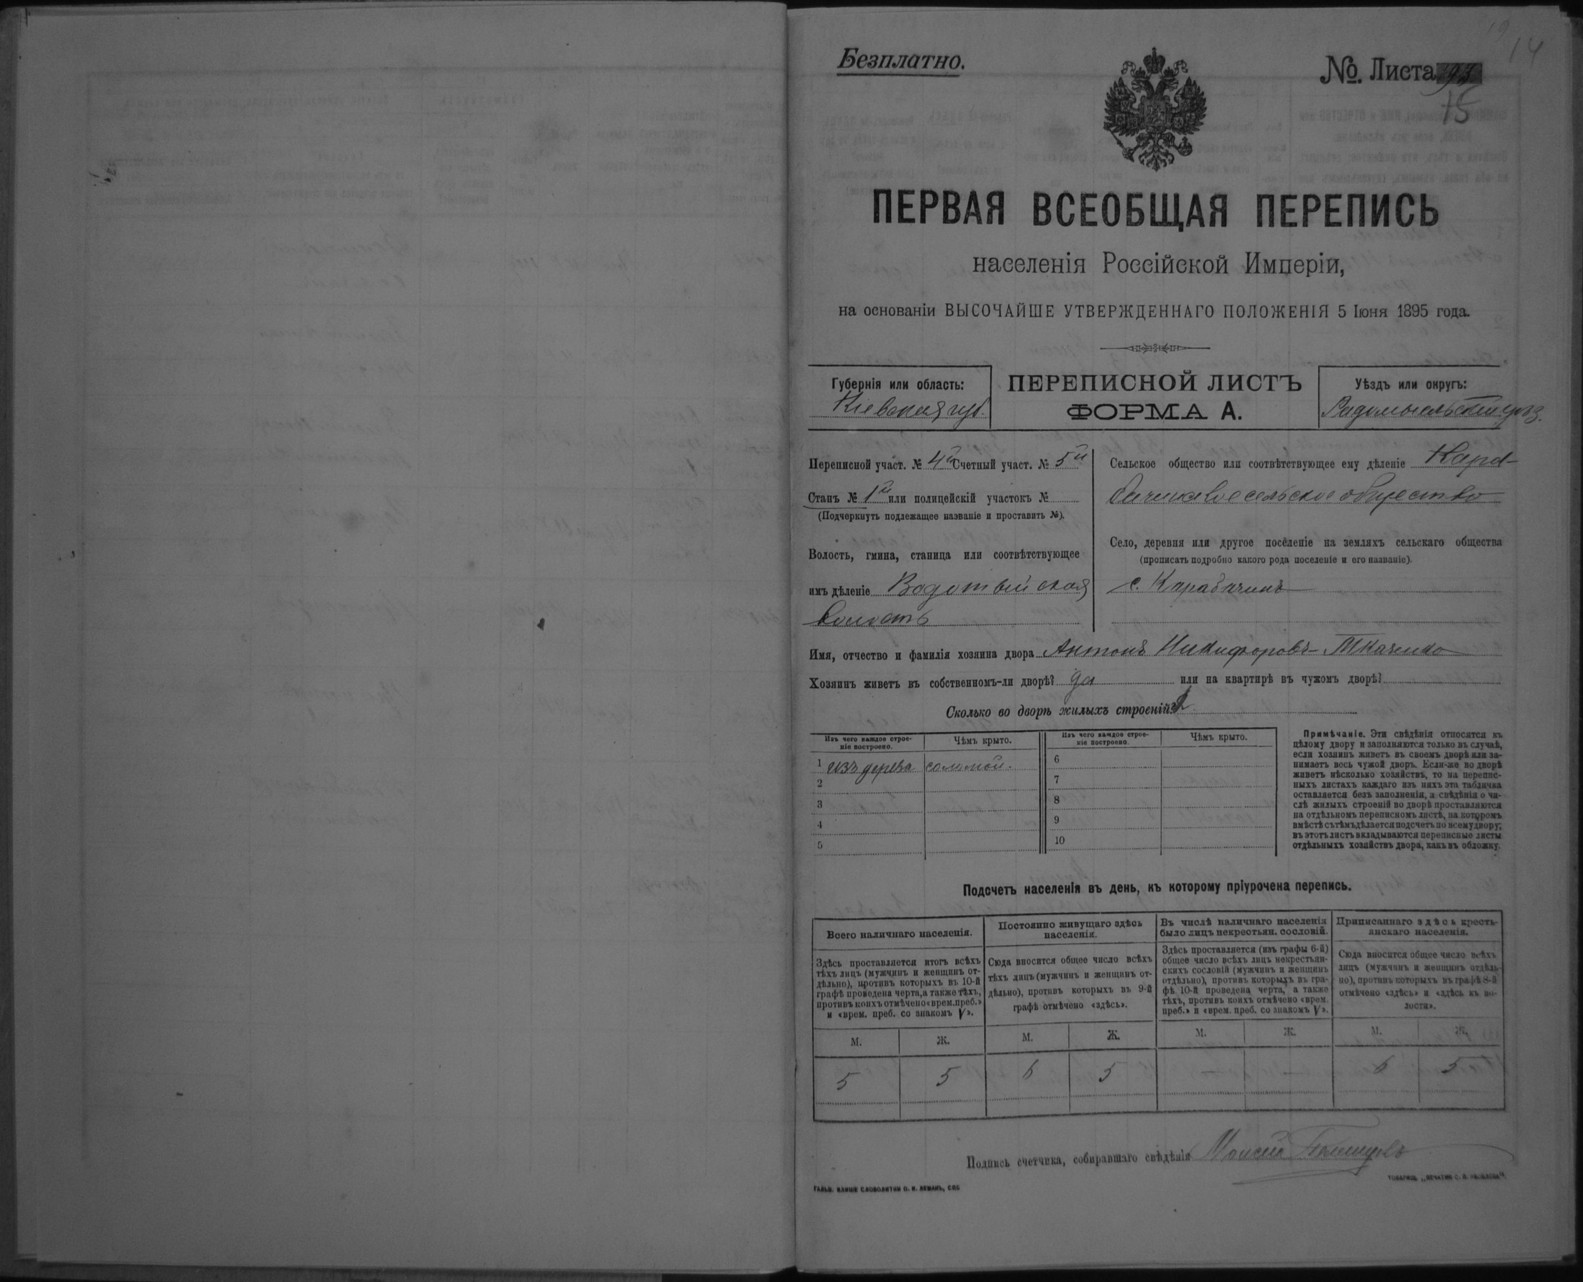 14
Безплатно.
№ Листа
15
ПЕРВАЯ ВСЕОБЩАЯ ПЕРЕПИСЬ
населенія Россійской Имперіи,
на основаніи ВЫСОЧАЙШЕ УТВЕРЖДЕННАГО ПОЛОЖЕНІЯ 5 Іюня 1895 года.
Губернія или область:
Кіевская губ.
ПЕРЕПИСНОЙ ЛИСТЪ
ФОРМА А.
Уѣздъ или округъ:
Радомысльскій уѣзд.
Переписной участ. № 4й Счетный участ. № 5й
Станъ № 1й или полицейскій участокъ №
(Подчеркнуть подлежащее названіе и проставить №).
Волость, гмина, станица или соотвѣтствующее
имъ дѣленіе Водотыйская
волость
Сельское общество или соотвѣтствующее ему дѣленіе Кара-
бачинское сельское общество
Село, деревня или другое поселеніе на земляхъ сельскаго общества
(прописать подробно какого рода поселеніе и его названіе).
с. Карабачинъ
Имя, отчество и фамилія хозяина двора Антонъ Никифоровъ Ткаченко
Хозяинъ живетъ въ собственномъ-ли дворѣ? да или на квартирѣ въ чужомъ дворѣ?
Сколько во дворѣ жилыхъ строеній?
Изъ чего каждое строе-
ніе построено.
Чѣмъ крыто.
Изъ чего каждое строе-
ніе построено.
Чѣмъ крыто.
1 изъ дерева соломой.
2
3
4
5
6
7
8
9
10
Примѣчаніе. Эти свѣдѣнія относятся къ
цѣлому двору и заполняются только въ случаѣ,
если хозяинъ живетъ въ своемъ дворѣ или за-
нимаетъ весь чужой дворъ. Если-же во дворѣ
живетъ нѣсколько хозяйствъ, то на перепис-
ныхъ листахъ каждаго изъ нихъ эта табличка
оставляется безъ заполненія, а свѣдѣнія о чи-
слѣ жилыхъ строеній во дворѣ проставляются
на отдѣльномъ переписномъ листѣ, на которомъ
вмѣстѣ съ тѣмъ дѣлается подсчетъ по всему двору;
въ этотъ листъ вкладываются переписные листы
отдѣльныхъ хозяйствъ двора, какъ въ обложку.
Подсчетъ населенія въ день, къ которому пріурочена перепись.
Всего наличнаго населенія.
Здѣсь проставляется итогъ всѣхъ
тѣхъ лицъ (мужчинъ и женщинъ от-
дѣльно), противъ которыхъ въ 10-й
графѣ проведена черта, а также тѣхъ,
противъ коихъ отмѣчено «врем. преб.»
и «врем. преб. со знакомъ V».
Постоянно живущаго здѣсь
населенія.
Сюда вносится общее число всѣхъ
тѣхъ лицъ (мужчинъ и женщинъ от-
дѣльно), противъ которыхъ въ 9-й
графѣ отмѣчено «здѣсь».
Въ числѣ наличнаго населенія
было лицъ некрестьян. сословій.
Здѣсь проставляется (изъ графы 6-й)
общее число всѣхъ лицъ некрестьян-
скихъ сословій (мужчинъ и женщинъ
отдѣльно), противъ которыхъ въ гра-
фѣ 10-й проведена черта, а также
тѣхъ, противъ коихъ отмѣчено «врем.
преб.» и «врем. преб. со знакомъ V».
Приписаннаго здѣсь кресть-
янскаго населенія.
Сюда вносится общее число всѣхъ
лицъ (мужчинъ и женщинъ отдѣль-
но), противъ которыхъ въ графѣ 8-й
отмѣчено «здѣсь» и «здѣсь въ во-
лости».
М. Ж. М. Ж. М. Ж. М. Ж.
5 5 6 5 — — 6 5
Подпись счетчика, собиравшаго свѣдѣнія Моисей